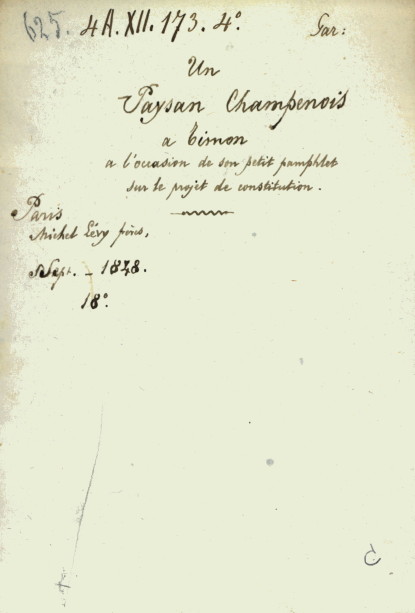 625. 4A.XII.173.4º. Gar:
Un
Paysan Champenois
a Timon
a l'occasion de son petit pamphlet
sur le projet de constitution.
Paris
Michel Lévy frères,
Sept. - 1848.
18º.